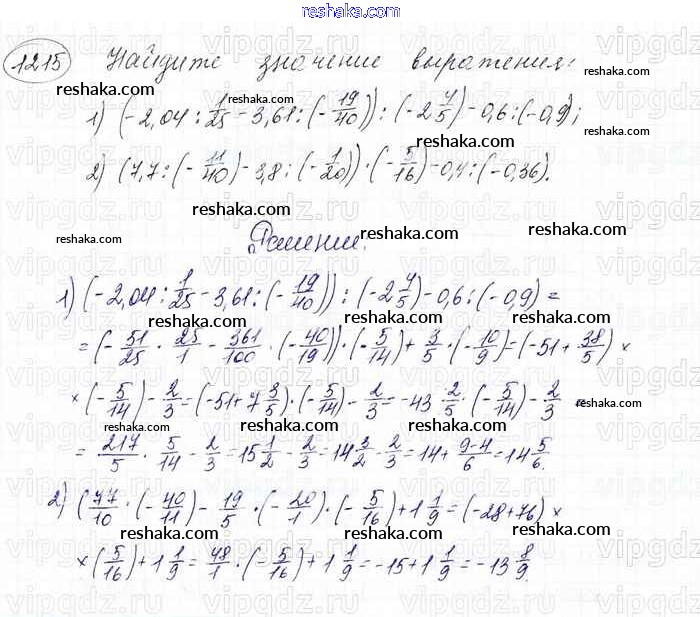 reshaka.com
1215 Найдите значение выражения:
1) (-2,04 : 1/25 - 3,61 : (-19/40)) : (-2 4/5) - 0,6 : (-0,9);
2) (7,7 : (-11/40) - 3,8 : (-1/20)) · (-5/16) - 0,4 : (-0,36).
Решение.
1) (-2,04 : 1/25 - 3,61 : (-19/40)) : (-2 4/5) - 0,6 : (-0,9) =
= (-51/25 · 25/1 - 361/100 · (-40/19)) · (-5/14) + 3/5 · (-10/9) = (-51 + 38/5) ×
× (-5/14) - 2/3 = (-51 + 7 3/5) · (-5/14) - 2/3 = -43 2/5 · (-5/14) - 2/3 =
= 217/5 · 5/14 - 2/3 = 15 1/2 - 2/3 = 14 3/2 - 2/3 = 14 + 9-4/6 = 14 5/6.
2) (77/10 · (-40/11) - 19/5 · (-20/1) · (-5/16) + 1 1/9 = (-28 + 76) ×
× (5/16) + 1 1/9 = 48/1 · (-5/16) + 1 1/9 = -15 + 1 1/9 = -13 8/9.